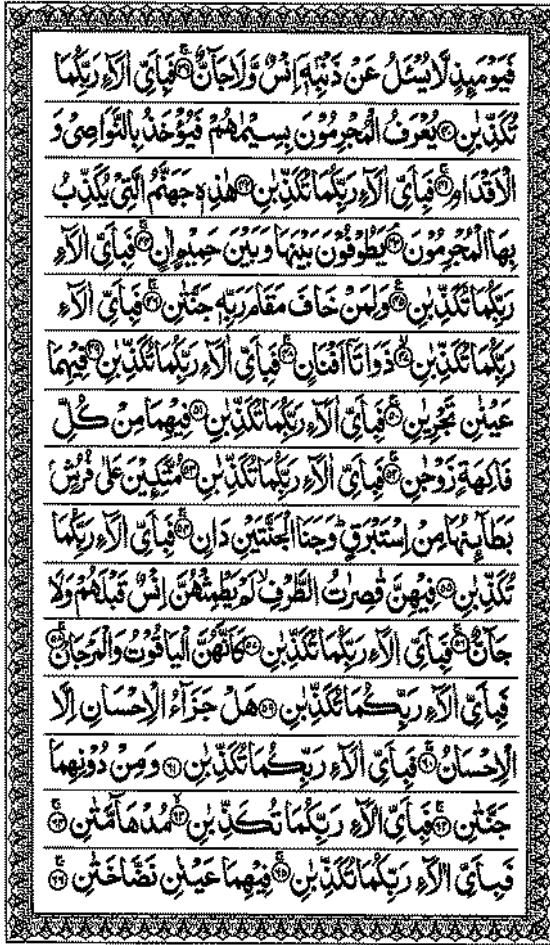 فَيَوْمَئِذٍ لَّا يُسْـَٔلُ عَنْ ذَنْۢبِهٖۤ اِنْسٌ وَّلَا جَآنٌّ ۝۳۹ فَبِاَيِّ اٰلَآءِ رَبِّكُمَا
تُكَذِّبٰنِ ۝۴۰ يُعْرَفُ الْمُجْرِمُوْنَ بِسِيْمٰهُمْ فَيُؤْخَذُ بِالنَّوَاصِيْ وَ
الْاَقْدَامِ ۝۴۱ فَبِاَيِّ اٰلَآءِ رَبِّكُمَا تُكَذِّبٰنِ ۝۴۲ هٰذِهٖ جَهَنَّمُ الَّتِيْ يُكَذِّبُ
بِهَا الْمُجْرِمُوْنَ ۝۴۳ يَطُوْفُوْنَ بَيْنَهَا وَبَيْنَ حَمِيْمٍ اٰنٍ ۝۴۴ فَبِاَيِّ اٰلَآءِ
رَبِّكُمَا تُكَذِّبٰنِ ۝۴۵ وَلِمَنْ خَافَ مَقَامَ رَبِّهٖ جَنَّتٰنِ ۝۴۶ فَبِاَيِّ اٰلَآءِ
رَبِّكُمَا تُكَذِّبٰنِ ۝۴۷ ذَوَاتَاۤ اَفْنَانٍ ۝۴۸ فَبِاَيِّ اٰلَآءِ رَبِّكُمَا تُكَذِّبٰنِ ۝۴۹ فِيْهِمَا
عَيْنٰنِ تَجْرِيٰنِ ۝۵۰ فَبِاَيِّ اٰلَآءِ رَبِّكُمَا تُكَذِّبٰنِ ۝۵۱ فِيْهِمَا مِنْ كُلِّ
فَاكِهَةٍ زَوْجٰنِ ۝۵۲ فَبِاَيِّ اٰلَآءِ رَبِّكُمَا تُكَذِّبٰنِ ۝۵۳ مُتَّكِـِٕيْنَ عَلٰى فُرُشٍۭ
بَطَآىِٕنُهَا مِنْ اِسْتَبْرَقٍ ؕ وَجَنَا الْجَنَّتَيْنِ دَانٍ ۝۵۴ فَبِاَيِّ اٰلَآءِ رَبِّكُمَا
تُكَذِّبٰنِ ۝۵۵ فِيْهِنَّ قٰصِرٰتُ الطَّرْفِ ۙ لَمْ يَطْمِثْهُنَّ اِنْسٌ قَبْلَهُمْ وَلَا
جَآنٌّ ۝۵۶ فَبِاَيِّ اٰلَآءِ رَبِّكُمَا تُكَذِّبٰنِ ۝۵۷ كَاَنَّهُنَّ الْيَاقُوْتُ وَالْمَرْجَانُ ۝۵۸
فَبِاَيِّ اٰلَآءِ رَبِّكُمَا تُكَذِّبٰنِ ۝۵۹ هَلْ جَزَآءُ الْاِحْسَانِ اِلَّا
الْاِحْسَانُ ۝۶۰ فَبِاَيِّ اٰلَآءِ رَبِّكُمَا تُكَذِّبٰنِ ۝۶۱ وَمِنْ دُوْنِهِمَا
جَنَّتٰنِ ۝۶۲ فَبِاَيِّ اٰلَآءِ رَبِّكُمَا تُكَذِّبٰنِ ۝۶۳ مُدْهَآمَّتٰنِ ۝۶۴
فَبِاَيِّ اٰلَآءِ رَبِّكُمَا تُكَذِّبٰنِ ۝۶۵ فِيْهِمَا عَيْنٰنِ نَضَّاخَتٰنِ ۝۶۶